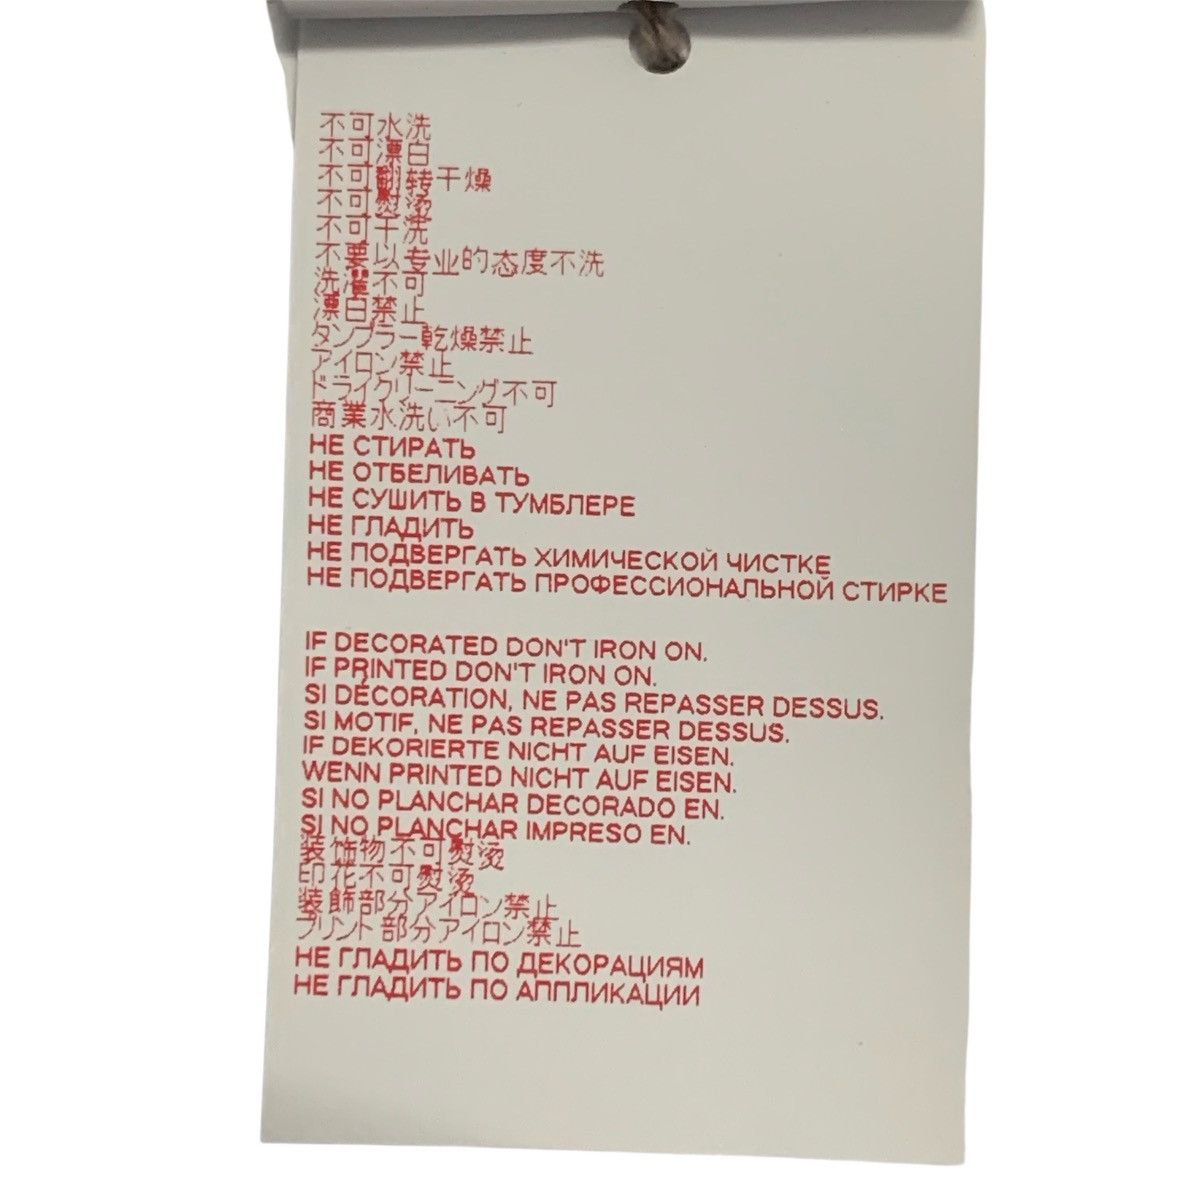 不可水洗
不可漂白
不可翻转干燥
不可熨烫
不可干洗
不要以专业的态度不洗
洗濯不可
漂白禁止
タンブラー乾燥禁止
アイロン禁止
ドライクリーニング不可
商業水洗い不可
НЕ СТИРАТЬ
НЕ ОТБЕЛИВАТЬ
НЕ СУШИТЬ В ТУМБЛЕРЕ
НЕ ГЛАДИТЬ
НЕ ПОДВЕРГАТЬ ХИМИЧЕСКОЙ ЧИСТКЕ
НЕ ПОДВЕРГАТЬ ПРОФЕССИОНАЛЬНОЙ СТИРКЕ
IF DECORATED DON'T IRON ON.
IF PRINTED DON'T IRON ON.
SI DÉCORATION, NE PAS REPASSER DESSUS.
SI MOTIF, NE PAS REPASSER DESSUS.
IF DEKORIERTE NICHT AUF EISEN.
WENN PRINTED NICHT AUF EISEN.
SI NO PLANCHAR DECORADO EN.
SI NO PLANCHAR IMPRESO EN.
装饰物不可熨烫
印花不可熨烫
装飾部分アイロン禁止
プリント部分アイロン禁止
НЕ ГЛАДИТЬ ПО ДЕКОРАЦИЯМ
НЕ ГЛАДИТЬ ПО АППЛИКАЦИИ